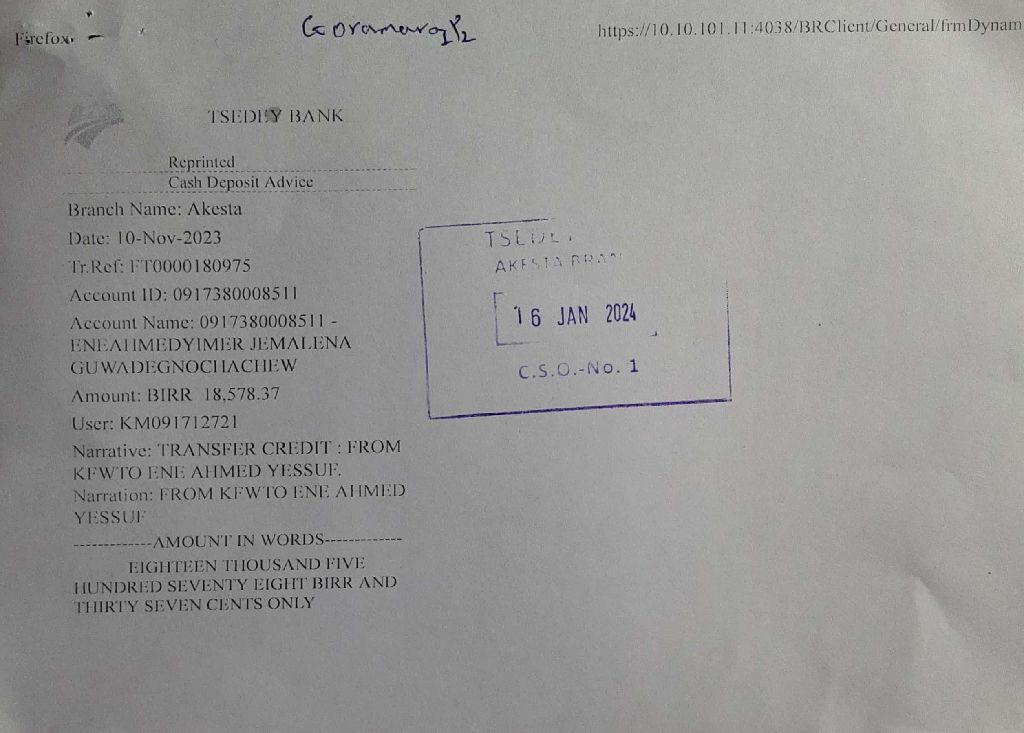 Firefox
https://10.10.101.11:4038/BRClient/General/frmDynam
TSEDEY BANK
Reprinted
Cash Deposit Advice
Branch Name: Akesta
Date: 10-Nov-2023
Tr.Ref: FT0000180975
Account ID: 0917380008511
Account Name: 0917380008511 -
ENEAHMEDYIMER JEMALENA
GUWADEGNOCHACHEW
Amount: BIRR 18,578.37
User: KM091712721
Narrative: TRANSFER CREDIT : FROM
KFWTO ENE AHMED YESSUF.
Narration: FROM KFWTO ENE AHMED
YESSUF
-------------AMOUNT IN WORDS-------------
EIGHTEEN THOUSAND FIVE
HUNDRED SEVENTY EIGHT BIRR AND
THIRTY SEVEN CENTS ONLY
AKESTA BRAN
16 JAN 2024
C.S.O.-No. 1